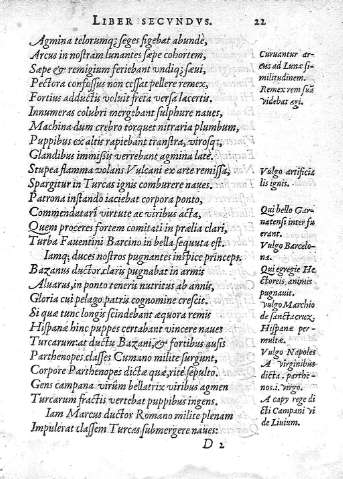 LIBER SECVNDVS. 22
Agmina telorumq; seges figebat abundè,
Arcus in nostram lunantes sæpe cohortem,
Sæpe & remigium feriebant vndiq; sæui,
Pectora confossus non cessat pellere remex,
Fortius adductu voluit freta versa lacertis.
Innumeras colubri mergebant sulphure naues,
Machina dum crebro torquet nitraria plumbum,
Puppibus ex altis rapiebant transtra, virosq;,
Glandibus immissis verrebant agmina latè.
Stupea flamma volans Vulcani ex arte remissa,
Spargitur in Turcas ignis comburere naues.
Patrona instando iaciebat corpora ponto,
Commendatarì virtute ac viribus acta,
Quem proceres fortem comitati in prælia clari,
Turba Fauentini Barcino in bella sequuta est.
Iamq; duces nostros pugnantes inspice princeps.
Bazanus ductor claris pugnabat in armis
Aluarus, in ponto reneris nutritus ab annis,
Gloria cui pelago, patris cognomine crescit.
Si qua tunc longis scindebant æquora remis
Hispanæ hinc puppes certabant vincere naues
Turcarum: at ductu Bazani, & fortibus ausis
Parthenopes classes Cumano milite surgunt,
Corpore Parthenopes dictæ quæ, ritè sepulto.
Gens campana virûm bellatrix viribus agmen
Turcarum fractis vertebat puppibus ingens.
Iam Marcus ductor Romano milite plenam
Impulerat classem Turcas submergere naues:
D 2
Curuantur ar-
cus ad Lunæ si-
militudinem.
Remex rem suã
videbat agi.
Vulgo artificia
lis ignis.
Qui bello Gar-
natensi inter fu
erant.
Vulgo Barcelo-
na.
Qui egregie He
ctoreis, animis
pugnauit.
Vulgo Marchio
de sanctæ cruz,
Hispanæ per-
multæ.
Vulgo Napoles
A virginibus
dicta. parthe-
nos. i. virgo.
A capy rege di
cti Campani vi
de Liuium.